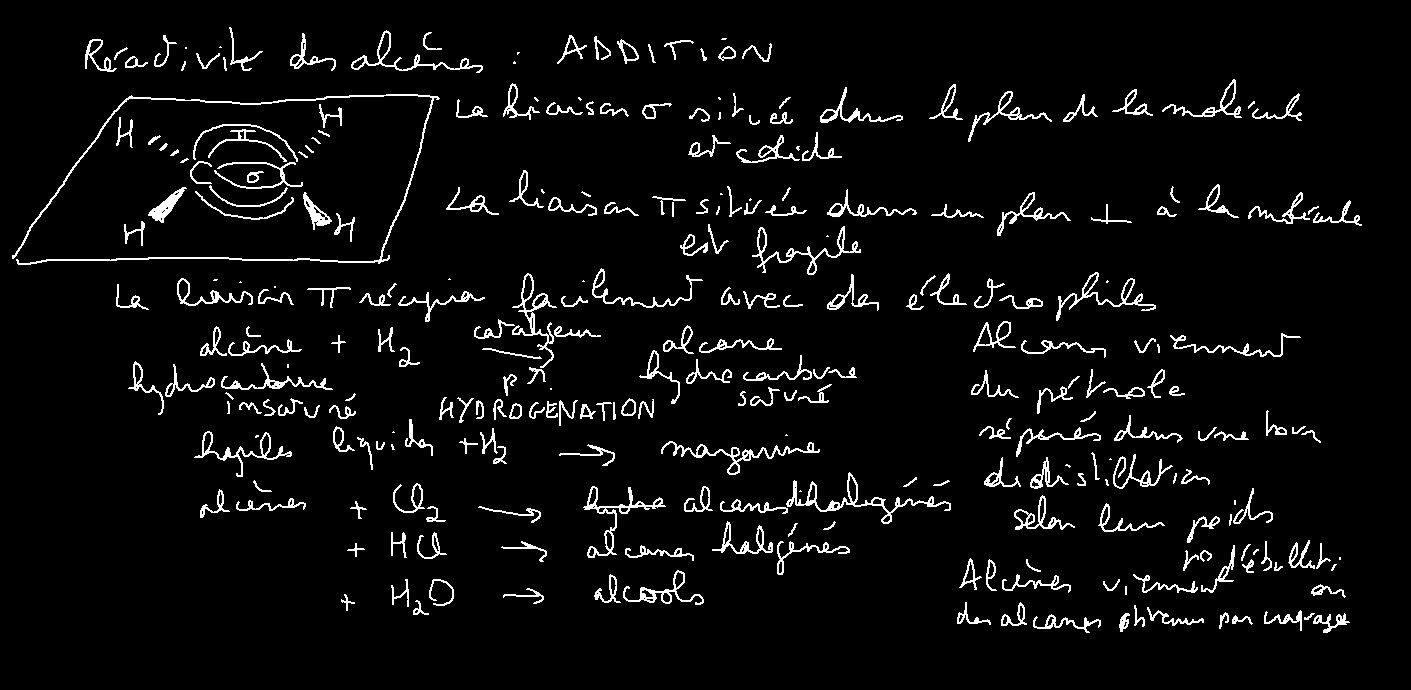 Réactivité des alcènes : ADDITION
H H
π
σ
H H
La liaison σ située dans le plan de la molécule
est solide
La liaison π située dans un plan ⊥ à la molécule
est fragile
La liaison π facilement avec des électrophiles
alcène + H2 catalyseur → alcane
hydrocarbure hydrocarbure
insaturé saturé
HYDROGENATION
liquides + H2 → margarine
alcènes + Cl2 → alcanes dihalogénés
+ HCl → alcanes halogénés
+ H2O → alcools
Alcanes viennent
du pétrole
séparés dans une tour
de distillation
selon leur poids
To d'ébulliti
on
Alcènes viennent
des alcanes obtenus par craquage